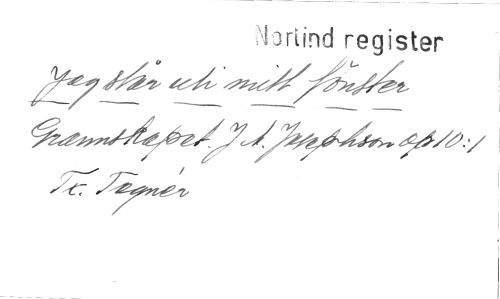 Norlind register
Jag står uti mitt fönster
Grannskapet. J. A. Josephson op 10:1
Tx. Tegnér